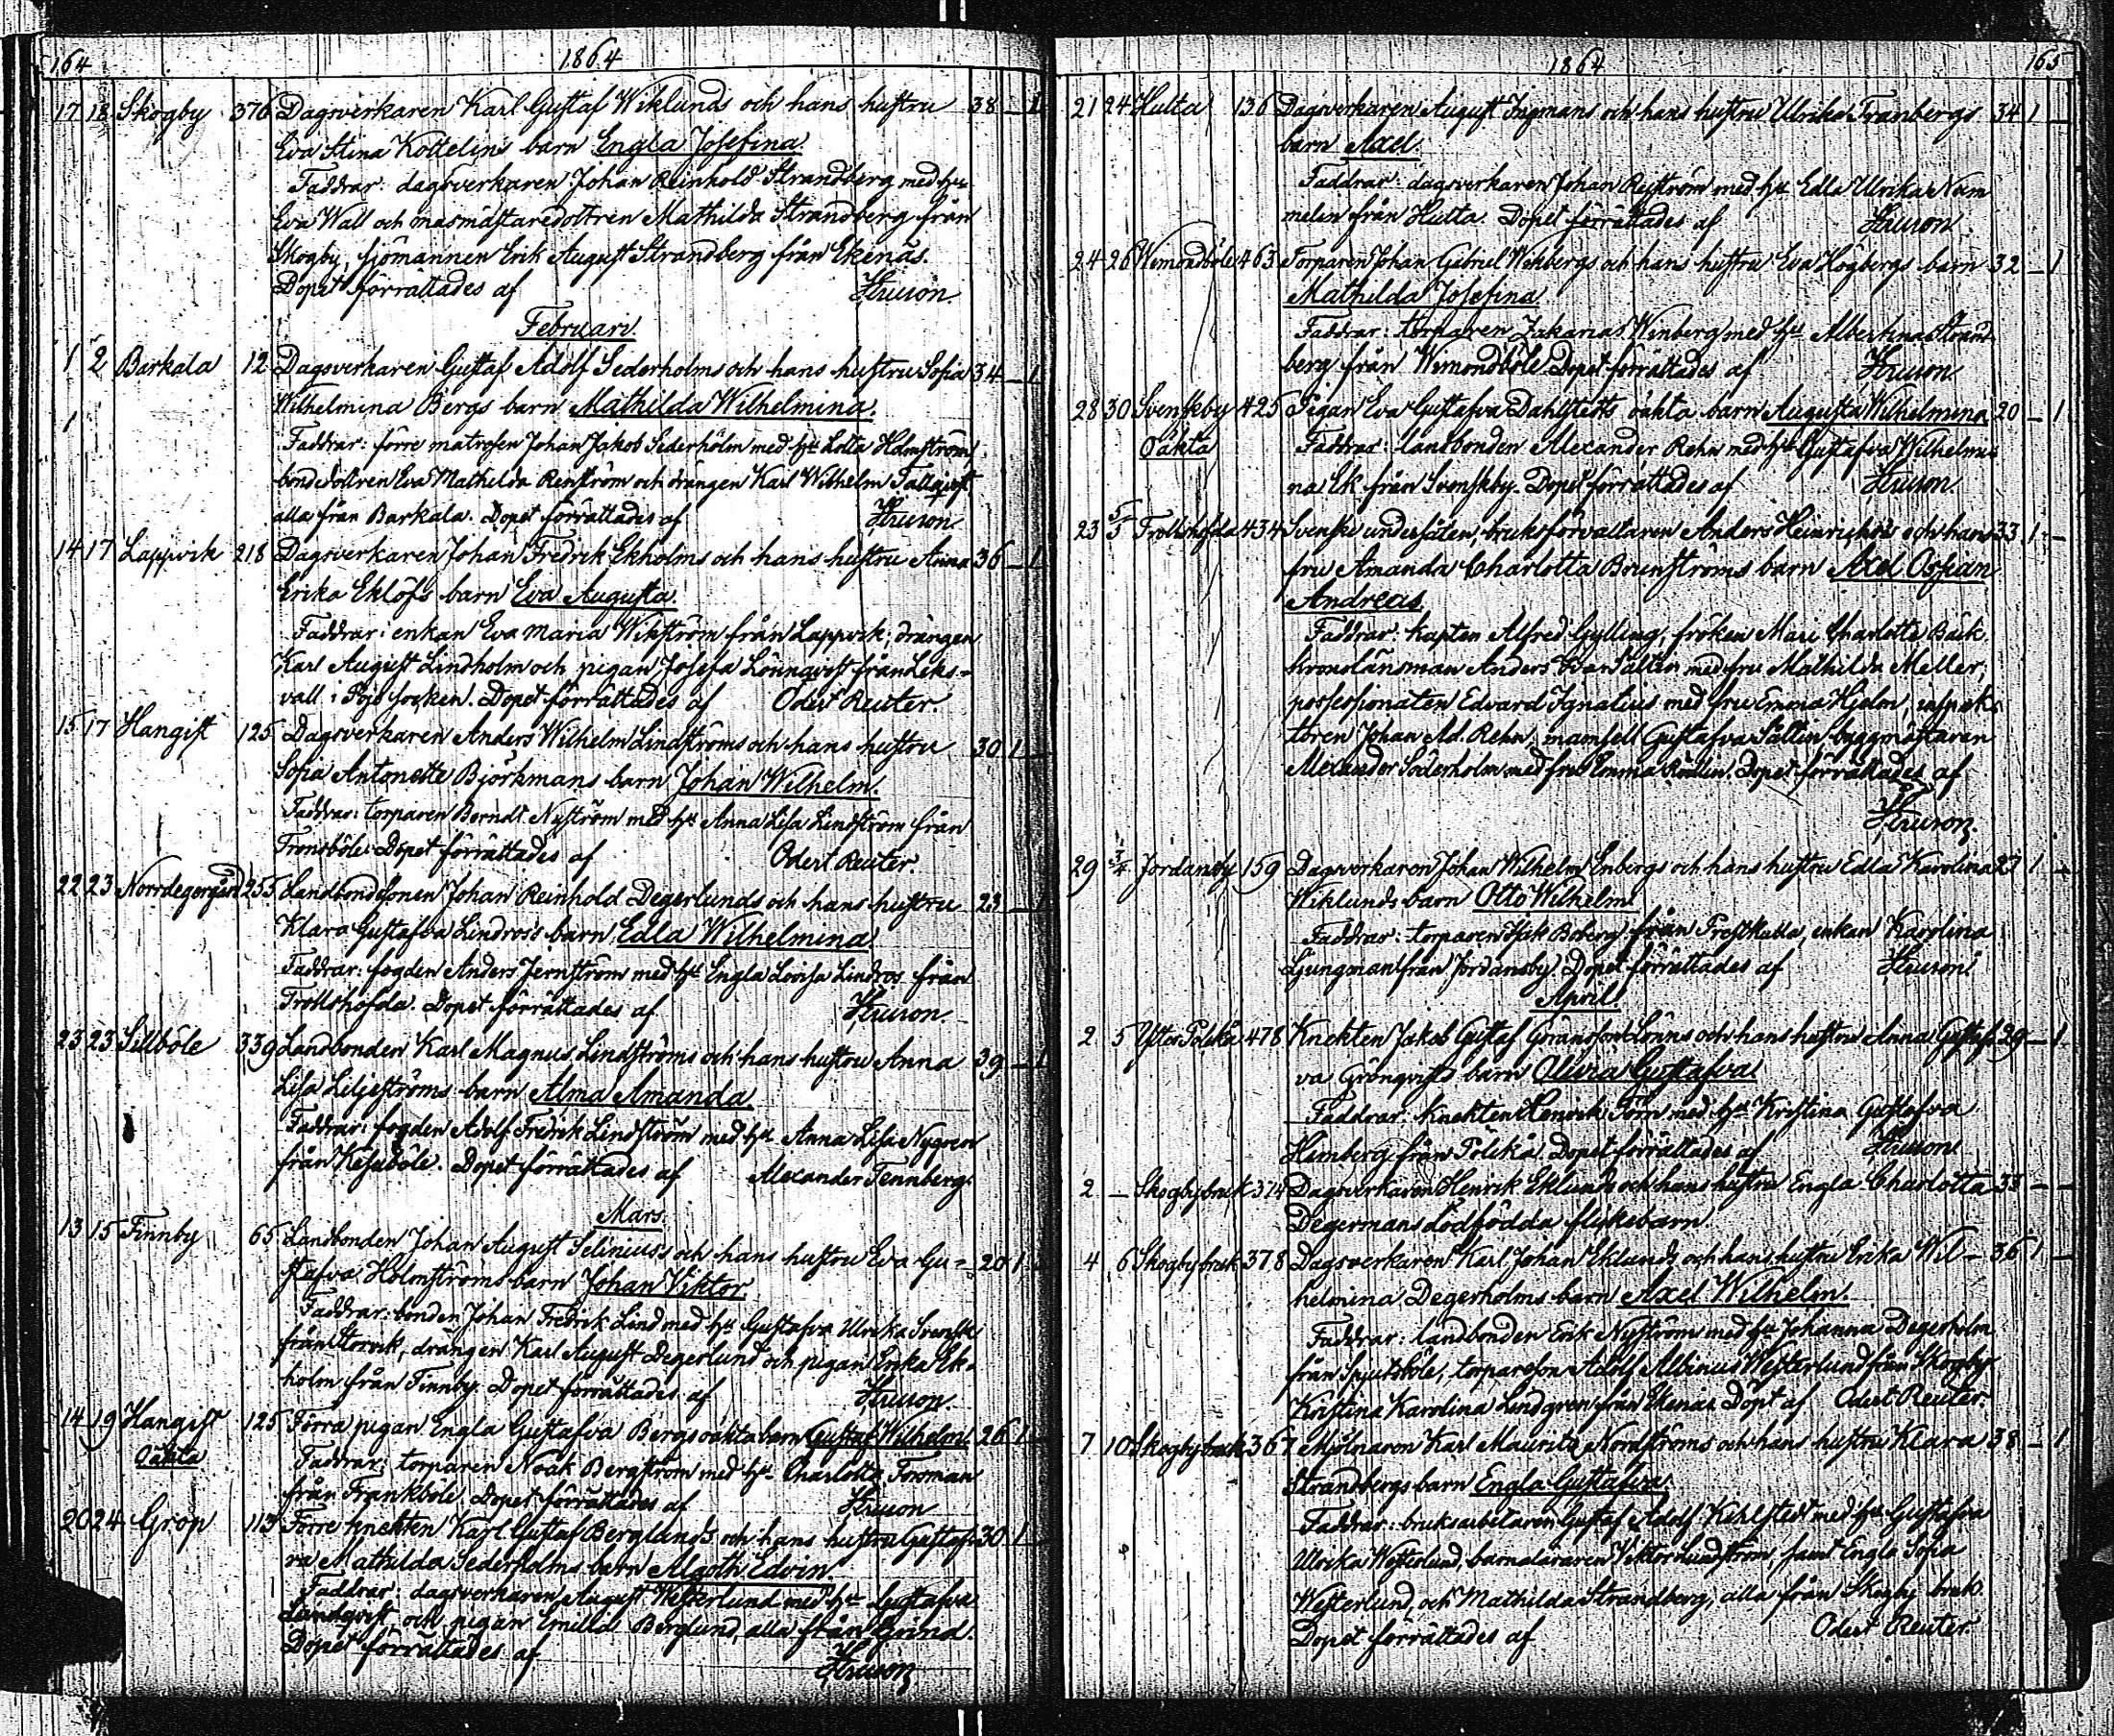 164 1864
17 18 Skogby 376 Dagsverkaren Karl Gustaf Wiklunds och hans hustru 38 – 1
Eva Stina Kottelins barn Engla Josefina.
Faddrar: dagsverkaren Johan Reinhold Strandberg med h:u
Eva Wall och masmästaredottren Mathilda Strandberg från
Skogby, sjömannen Erik August Strandberg från Ekenäs.
Dopet förrättades af
Februari.
1 2 Barkala 12 Dagsverkaren Gustaf Adolf Sederholms och hans hustru Sofia 34 – 1
Wilhelmina Bergs barn Mathilda Wilhelmina.
1
Faddrar: förre matrosen Johan Jakob Sederholm med h:u Lotta Holmström,
bondedottren Eva Mathilda Renström och drängen Karl Wilhelm Tallqvist,
alla från Barkala. Dopet förrättades af
14 17 Lappvik 218 Dagsverkaren Johan Fredrik Ekholms och hans hustru Anna 36 – 1
Erika Eklöfs barn Eva Augusta.
Faddrar: enkan Eva Maria Wikström från Lappvik; drängen
Karl August Lindholm och pigan Josefa Lönnqvist från Leks-
vall i Pojo socken. Dopet förrättades af Odert Reuter.
15 17 Hangist 125 Dagsverkaren Anders Wilhelm Lindströms och hans hustru 30 1 –
Sofia Antonette Björkmans barn Johan Wilhelm.
Faddrar: torparen Berndt Nyström med h:u Anna Lisa Lindström från
Tronsböle. Dopet förrättades af Odert Reuter.
22 23 Norrdegergård 255 Landbondesonen Johan Reinhold Degerlunds och hans hustru 23 – 1
Klara Gustafva Lindros's barn Edla Wilhelmina.
Faddrar: fogden Anders Jernström med h:u Engla Lovisa Lindros från
Trollshofda. Dopet förrättades af
23 23 Sillböle 339 Landbonden Karl Magnus Lindströms och hans hustru Anna 39 – 1
Lisa Liljeströms barn Alma Amanda.
Faddrar: fogden Adolf Fredrik Lindström med h:u Anna Lisa Nygren
från Kesuböle. Dopet förrättades af Alexander Tennberg.
Mars.
13 15 Finnby 65 Landbonden Johan August Selinius's och hans hustru Eva Gu- 20 1 –
stafva Holmströms barn Johan Viktor.
Faddrar: bonden Johan Fredrik Lind med h:u Gustafva Ulrika Svensk
från Storvik, drängen Karl August Degerlund och pigan Erika Ek-
holm från Finnby. Dopet förrättades af
14 19 Hangist 125 Förra pigan Engla Gustafva Bergs oäkta barn Gustaf Wilhelm. 26 1 –
Oäkta
Faddrar: torparen Noak Bergström med h:u Charlotta Forsman
från Frankböle. Dopet förrättades af
20 24 Grop 113 Förre knekten Karl Gustaf Berglunds och hans hustru Gustaf- 30 1 –
va Mathilda Sederholms barn Algoth Edvin.
Faddrar: dagsverkaren August Westerlund med h:u Gustafva
Lundqvist och pigan Emilia Berglund, alla från Grind.
Dopet förrättades af
1864 165
21 24 Hulta 136 Dagsverkaren August Ingmans och hans hustru Ulrika Franbergs 34 1 –
barn Axel.
Faddrar: dagsverkaren Johan Rejström med h:u Edla Ulrika Num
melin från Hulta. Dopet förrättades af
24 26 Wimondböle 463 Torparen Johan Gabriel Wikbergs och hans hustru Eva Högbergs barn 32 – 1
Mathilda Josefina
Faddrar: torparen Zakarias Winberg med h:u Albertina Strand-
berg från Wimondböle. Dopet förrättades af
28 30 Svenskby 425 Pigan Eva Gustafva Dahlstedts oäkta barn Augusta Wilhelmina 20 – 1
Oäkta
Faddrar: landbonden Alexander Rehn med h:u Gustafva Wilhelmi
na Ek från Svenskby. Dopet förrättades af
23 5/5 Trollshofda 434 Svenske undersåten, bruksförvaltaren Anders och hans 33 1 –
fru Amanda Charlotta Brunströms barn Axel Ossian
Andreas.
Faddrar: kapten Alfred Gylling, fröken Mari Charlotte Bäck,
kronolänsman Anders med fru Mathilda Meller,
possessionaten Edvard Ignatius med fru Emma Hjelm, inspek-
tören Johan Ad. Rehn, mamsell Gustafva Sallin, byggmästaren
Alexander Söderholm med fru Emma. Dopet förrättades af
29 3/4 Jordansby 159 Dagsverkaren Johan Wilhelm Enbergs och hans hustru Edla Karolina 27 1 –
Wiklunds barn Otto Wilhelm.
Faddrar: torparen Isak Broberg från Prestkulla, enkan Karolina
Ljungman från Jordansby. Dopet förrättades af
April.
2 5 478 Knekten Jakob Gustaf Göransson Lönns och hans hustru Anna Gustaf- 29 – 1
va Grönqvists barn Olivia Gustafva
Faddrar: knekten Henrik Törn med h:u Kristina Gustafva
Hemberg från Pölskå. Dopet förrättades af
2 – Skogby bruk 374 Dagsverkaren Henrik Eklunds och hans hustru Engla Charlotta 33 – –
Degermans dödfödda flickebarn.
4 6 Skogby bruk 378 Dagsverkaren Karl Johan Eklunds och hans hustru Erika Wil- 36 1 –
helmina Degerholms barn Axel Wilhelm.
Faddrar: landbonden Erik Nyström med h:u Johanna Degerholm
från Spjutsböle, torpareson Adolf Albinus Westerlund från Skogby,
Kristina Karolina Lindgren från Ekenäs. Döpt af Odert Reuter.
7 10 Skogby bruk 367 Mjölnaren Karl Maurits Nordströms och hans hustru Klara 38 – 1
Strandbergs barn Engla Gustafva.
Faddrar: bruksarbetaren Gustaf Adolf Kihlstedt med h:u Gustafva
Ulrika Westerlund, barnaläraren Viktor Lundström, samt Engla Sofia
Westerlund, och Mathilda Strandberg, alla från Skogby bruk.
Dopet förrättades af Odert Reuter.